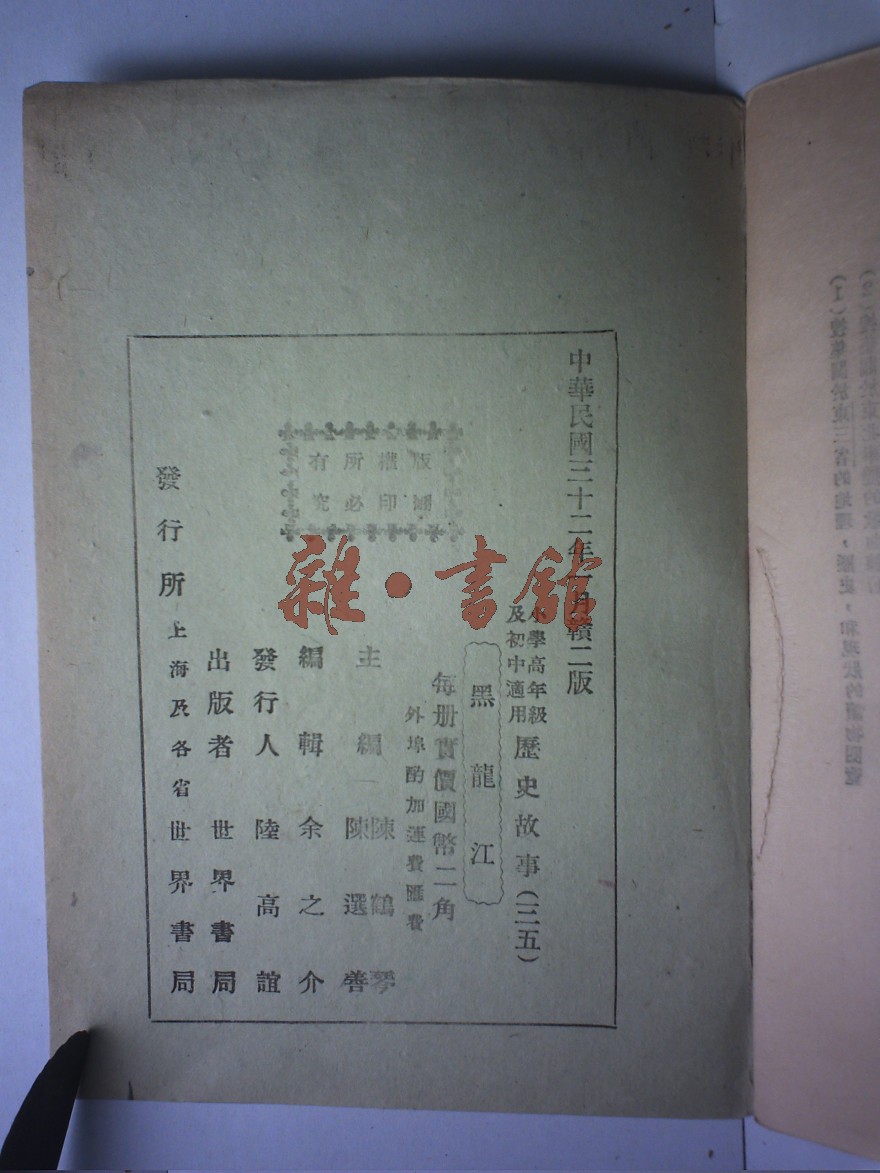 中華民國三十二年一月贛二版
小學高年級
及初中適用
歷史故事(三五)
黑龍江
每册實價國幣二角
外埠酌加運費匯費
主編 陳鶴琴
陳選善
編輯 余之介
發行人 陸高誼
出版者 世界書局
發行所 上海及各省世界書局
版權所有
翻印必究
雜·書館
(1)搜集關於東三省的地理,歷史,和現狀的讀物閱覽